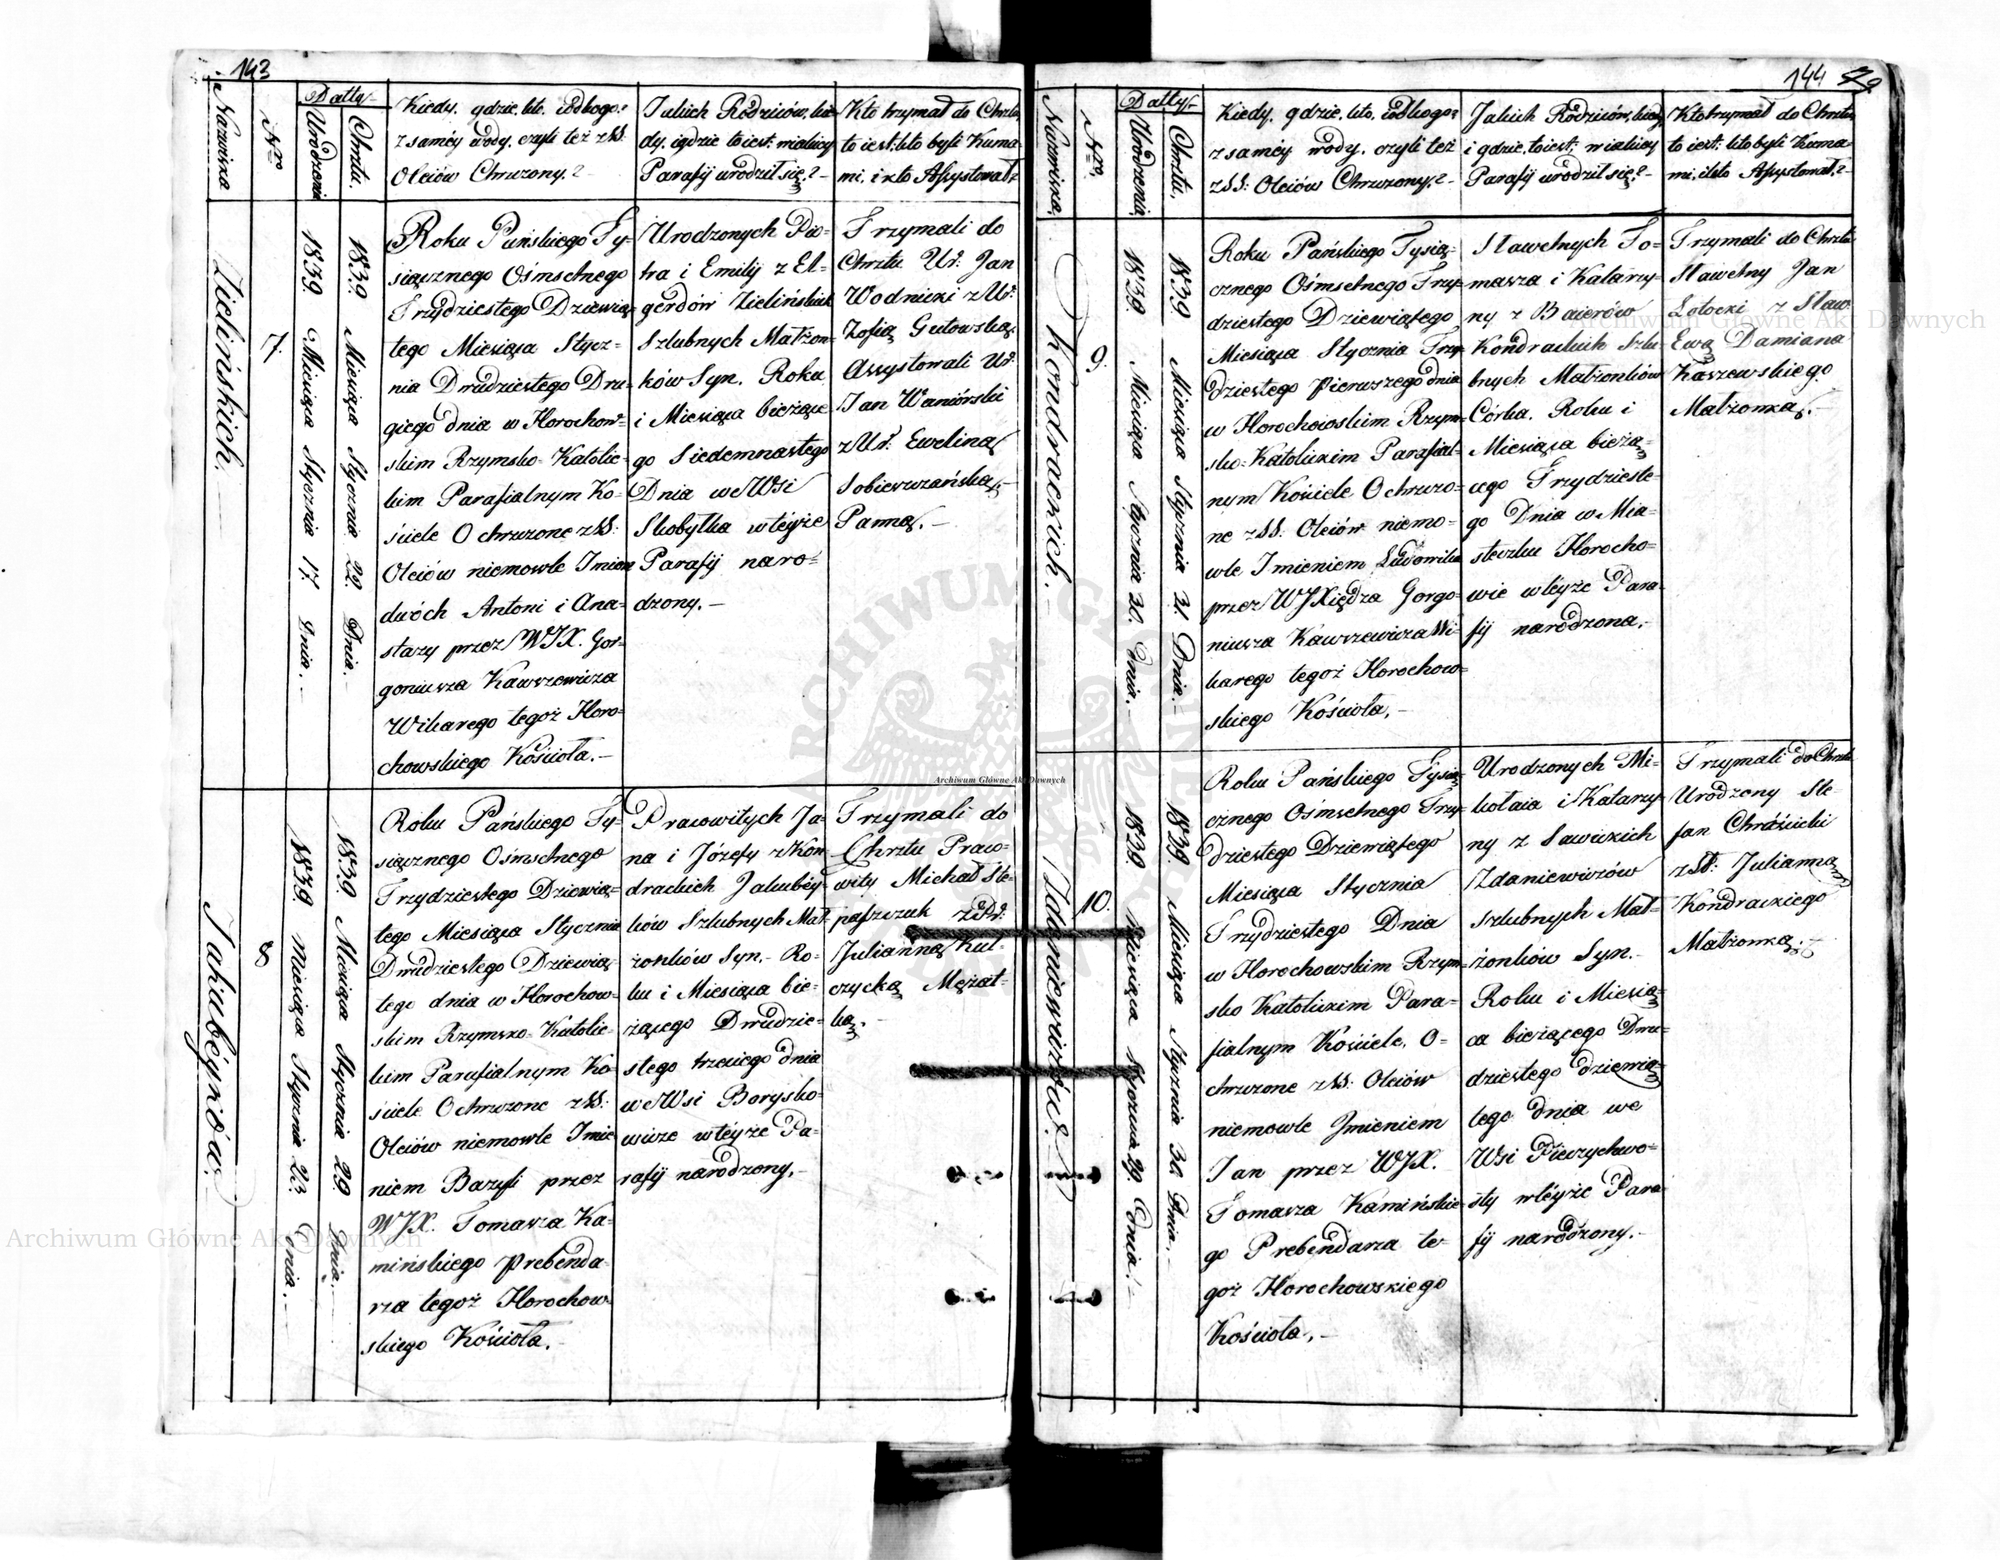 143
Nazwiska
Nro
Datty
Urodzenia
Chrztu.
Kiedy, gdzie, kto, i od kogo?
z saméy wody, czyli też z SS.
Oleiów Chrzczony.?
Jakich Rodziców, kie
dy, i gdzie to iest: w iakiey
Parafij urodził się.?
Kto trzymał do Chrztu,
to iest: kto byli Kuma=
mi, i kto Assystował?
Zielińskich.
7.
1839. Miesiąca Stycznia 17. Dnia.
1839. Miesiąca Stycznia 22. Dnia.
Roku Pańskiego Ty=
siącznego Ośmsetnego
Trzydziestego Dziewią=
tego Miesiąca Stycz=
nia Dwudziestego Dru=
giego dnia w Horochow=
skim Rzymsko-Katolic=
kim Parafialnym Ko=
ściele Ochrzczone z SS.
Oleiów niemowle Imion
dwóch Antoni i Ana=
stazy przez WJX. Gor=
goniusza Kawszewicza
Wikarego tegoż Horo=
chowskiego Kościoła.
Urodzonych Pio=
tra i Emilij z El=
gerdów Zielińskich
Szlubnych Małżon=
ków Syn. Roku
i Miesiąca bieżące
go Siedemnastego
Dnia w Wsi
Skobyłka w téyże
Parafij naro=
dzony.
Trzymali do
Chrztu Ur: Jan
Wodnicki z Ur:
Zofią Gutowską,
Assystowali Ur:
Jan Waniórski
z Ur: Eweliną
Sobieszczańską,
Panną.
Jakubéyków.
8
1839. Miesiąca Stycznia 23. Dnia.
1839. Miesiąca Stycznia 29. Dnia.
Roku Pańskiego Ty=
siącznego Ośmsetnego
Trzydziestego Dziewią=
tego Miesiąca Stycznia
Dwudziestego Dziewią=
tego dnia w Horochow=
skim Rzymsko-Katolic=
kim Parafialnym Ko=
ściele Ochrzczone z SS.
Oleiów niemowle Imie
niem Bazyli przez
WJX. Tomasza Ka=
mińskiego Prebenda=
rza tegoż Horochow=
skiego Kościoła.
Pracowitych Ja=
na i Józefy z Kon
drackich Jakubéy=
ków Szlubnych Mał=
żonków Syn. Ro=
ku i Miesiąca bie=
żącego Dwudzie=
stego trzeciego dnia
w Wsi Borysko=
wicze w téyże Pa=
rafij narodzony.
Trzymali do
Chrztu Praco=
wity Michał Ste=
pańczuk z
Julianną Kul=
czycką Mężat=
ką.
144
Nazwiska,
Nro,
Datty
Urodzenia,
Chrztu,
Kiedy, gdzie, kto, i od kogo?
z samey wody, czyli też
z SS: Oleiów Chrzczony.?
Jakich Rodziców, kiedy,
i gdzie, to iest: w iakiey
Parafij urodził się?
Kto trzymał do Chrztu,
to iest: kto byli Kuma=
mi, i kto Assystował?
Kondrackich.
9.
1839. Miesiąca Stycznia 30. Dnia.
1839. Miesiąca Stycznia 31. Dnia.
Roku Pańskiego Tysią=
cznego Ośmsetnego Trzy=
dziestego Dziewiątego
Miesiąca Stycznia Trzy=
dziestego pierwszego dnia
w Horochowskim Rzym=
sko-Katolickim Parafial=
nym Kościele Ochrzczo=
ne z SS. Oleiów niemo=
wle Imieniem Ludowika
przez WJXiędza Gorgo=
niusza Kawszewicza Wi=
karego tegoż Horochow=
skiego Kościoła,
Sławetnych To=
masza i Katarzy=
ny z Baierów
Kondrackich Szlu=
bnych Małżonków
Córka. Roku i
Miesiąca bieżą=
cego Trzydzieste=
go Dnia w Mia=
steczku Horocho=
wie w téyże Para=
fij narodzona.
Trzymali do Chrztu
Sławetny Jan
Łotocki z Sław.
Ewą Damiana
Kaszewskiego
Małżonką.
Zdaniewiczów.
10.
1839. Miesiąca Stycznia 29. Dnia.
1839. Miesiąca Stycznia 30. Dnia.
Roku Pańskiego Tysią=
cznego Ośmsetnego Trzy=
dziestego Dziewiątego
Miesiąca Stycznia
Trzydziestego Dnia
w Horochowskim Rzym=
sko Katolickim Para=
fialnym Kościele, O=
chrzczone z SS. Oleiów
niemowle Imieniem
Jan przez WJX.
Tomasza Kamińskie=
go Prebendarza te=
goż Horochowskiego
Kościoła,
Urodzonych Mi=
kołaia i Katarzy=
ny z Sawickich
Zdaniewiczów
szlubnych Mał=
żonków Syn.
Roku i Miesią=
ca bieżącego Dwu=
dziestego dziewią=
tego dnia we
Wsi Pieczychwo=
sty w téyże Para=
fij narodzony.
Trzymali do Chrztu
Urodzony Ste=
fan Chróścicki
z Sł. Julianną
Kondrackiego
Małżonką.
ARCHIWUM GŁÓWNE AKT DAWNYCH
Archiwum Główne Akt Dawnych
Archiwum Główne Akt Dawnych
Archiwum Główne Akt Dawnych